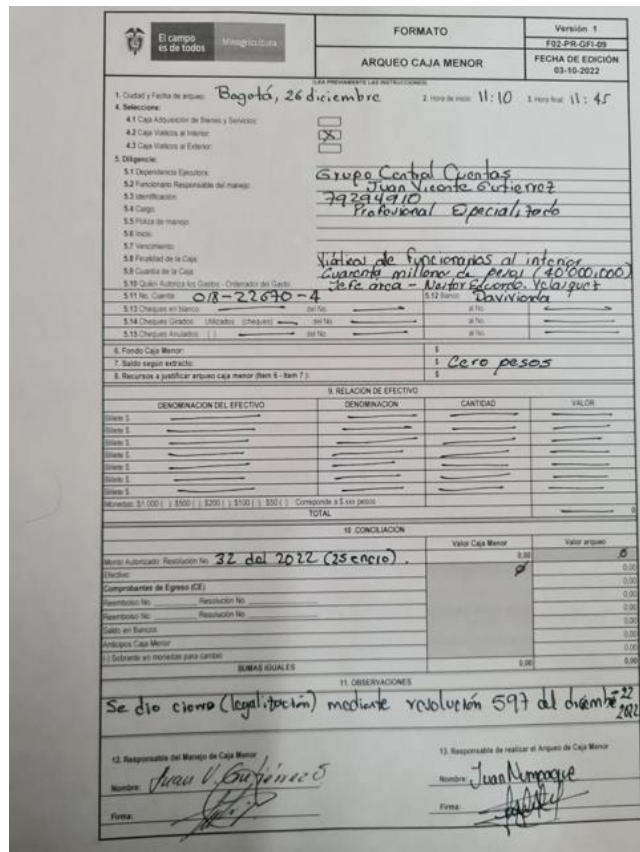 El campo es de todos
Minagricultura
FORMATO
ARQUEO CAJA MENOR
Versión 1
F02-PR-GFI-09
FECHA DE EDICIÓN
03-10-2022
(LEA PREVIAMENTE LAS INSTRUCCIONES)
1. Ciudad y Fecha de arqueo: Bogotá, 26 diciembre 2. Hora de inicio: 11:10 3. Hora final: 11:45
4. Seleccione:
4.1 Caja Adquisición de Bienes y Servicios:
4.2 Caja Viáticos al Interior: X
4.3 Caja Viáticos al Exterior:
5. Diligencie:
5.1 Dependencia Ejecutora: Grupo Central Cuentas
5.2 Funcionario Responsable del manejo: Juan Vicente Gutierrez
5.3 Identificación: 79294910
5.4 Cargo: Profesional Especializado
5.5 Póliza de manejo:
5.6 Inicio:
5.7 Vencimiento:
5.8 Finalidad de la Caja: Viáticos de funcionarios al interior
5.9 Cuantía de la Caja: Cuarenta millones de pesos (40'000,000)
5.10 Quien Autoriza los Gastos - Ordenador del Gasto: Jefe área - Nestor Eduardo Velasquez
5.11 No. Cuenta: 018-22670-4 5.12 Banco: Davivienda
5.13 Cheques en blanco: del No. al No.
5.14 Cheques Girados: Utilizados (cheques) del No. al No.
5.15 Cheques Anulados: ( ) del No. al No.
6. Fondo Caja Menor: $
7. Saldo según extracto: $ Cero pesos
8. Recursos a justificar arqueo caja menor (Item 6 - Item 7): $
9. RELACION DE EFECTIVO
DENOMINACION DEL EFECTIVO DENOMINACION CANTIDAD VALOR
Billete $
Billete $
Billete $
Billete $
Billete $
Billete $
Billete $
Monedas: $1.000 ( ) $500 ( ) $200 ( ) $100 ( ) $50 ( ) Corresponde a $ xxx pesos
TOTAL 0
10 CONCILIACION
Valor Caja Menor Valor arqueo
Monto Autorizado: Resolución No. 32 del 2022 (25 enero). 0,00
Efectivo: 0,00
Comprobantes de Egreso (CE) 0,00
Reembolso No. Resolución No. 0,00
Reembolso No. Resolución No. 0,00
Saldo en Bancos 0,00
Anticipos Caja Menor 0,00
(-) Sobrante en monedas para cambio 0,00
SUMAS IGUALES 0,00 0,00
11. OBSERVACIONES
Se dio cierre (legalización) mediante resolución 597 del diciembre 22 2022
12. Responsable del Manejo de Caja Menor
Nombre: Juan V. Gutiérrez S
Firma:
13. Responsable de realizar el Arqueo de Caja Menor
Nombre: Juan Numpaque
Firma: